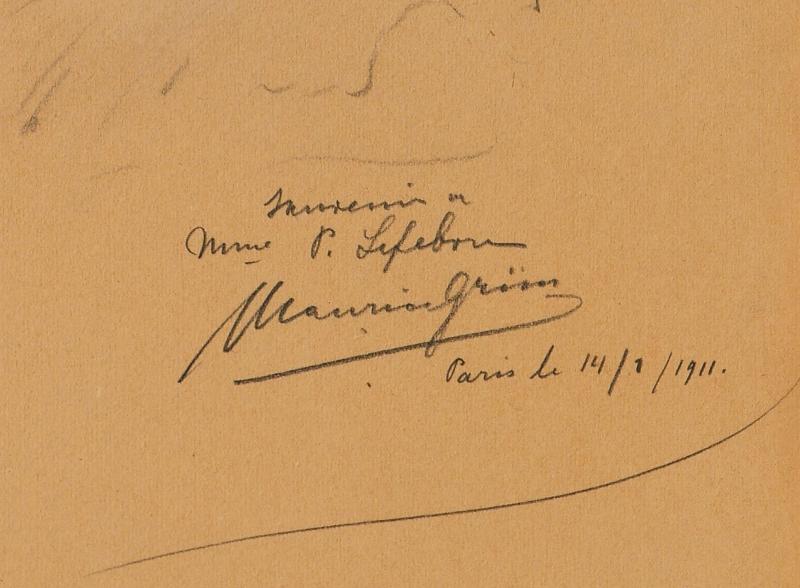 Souvenir a
Mme P. Lefebvre
Maurice Grün
Paris le 14/1/1911.